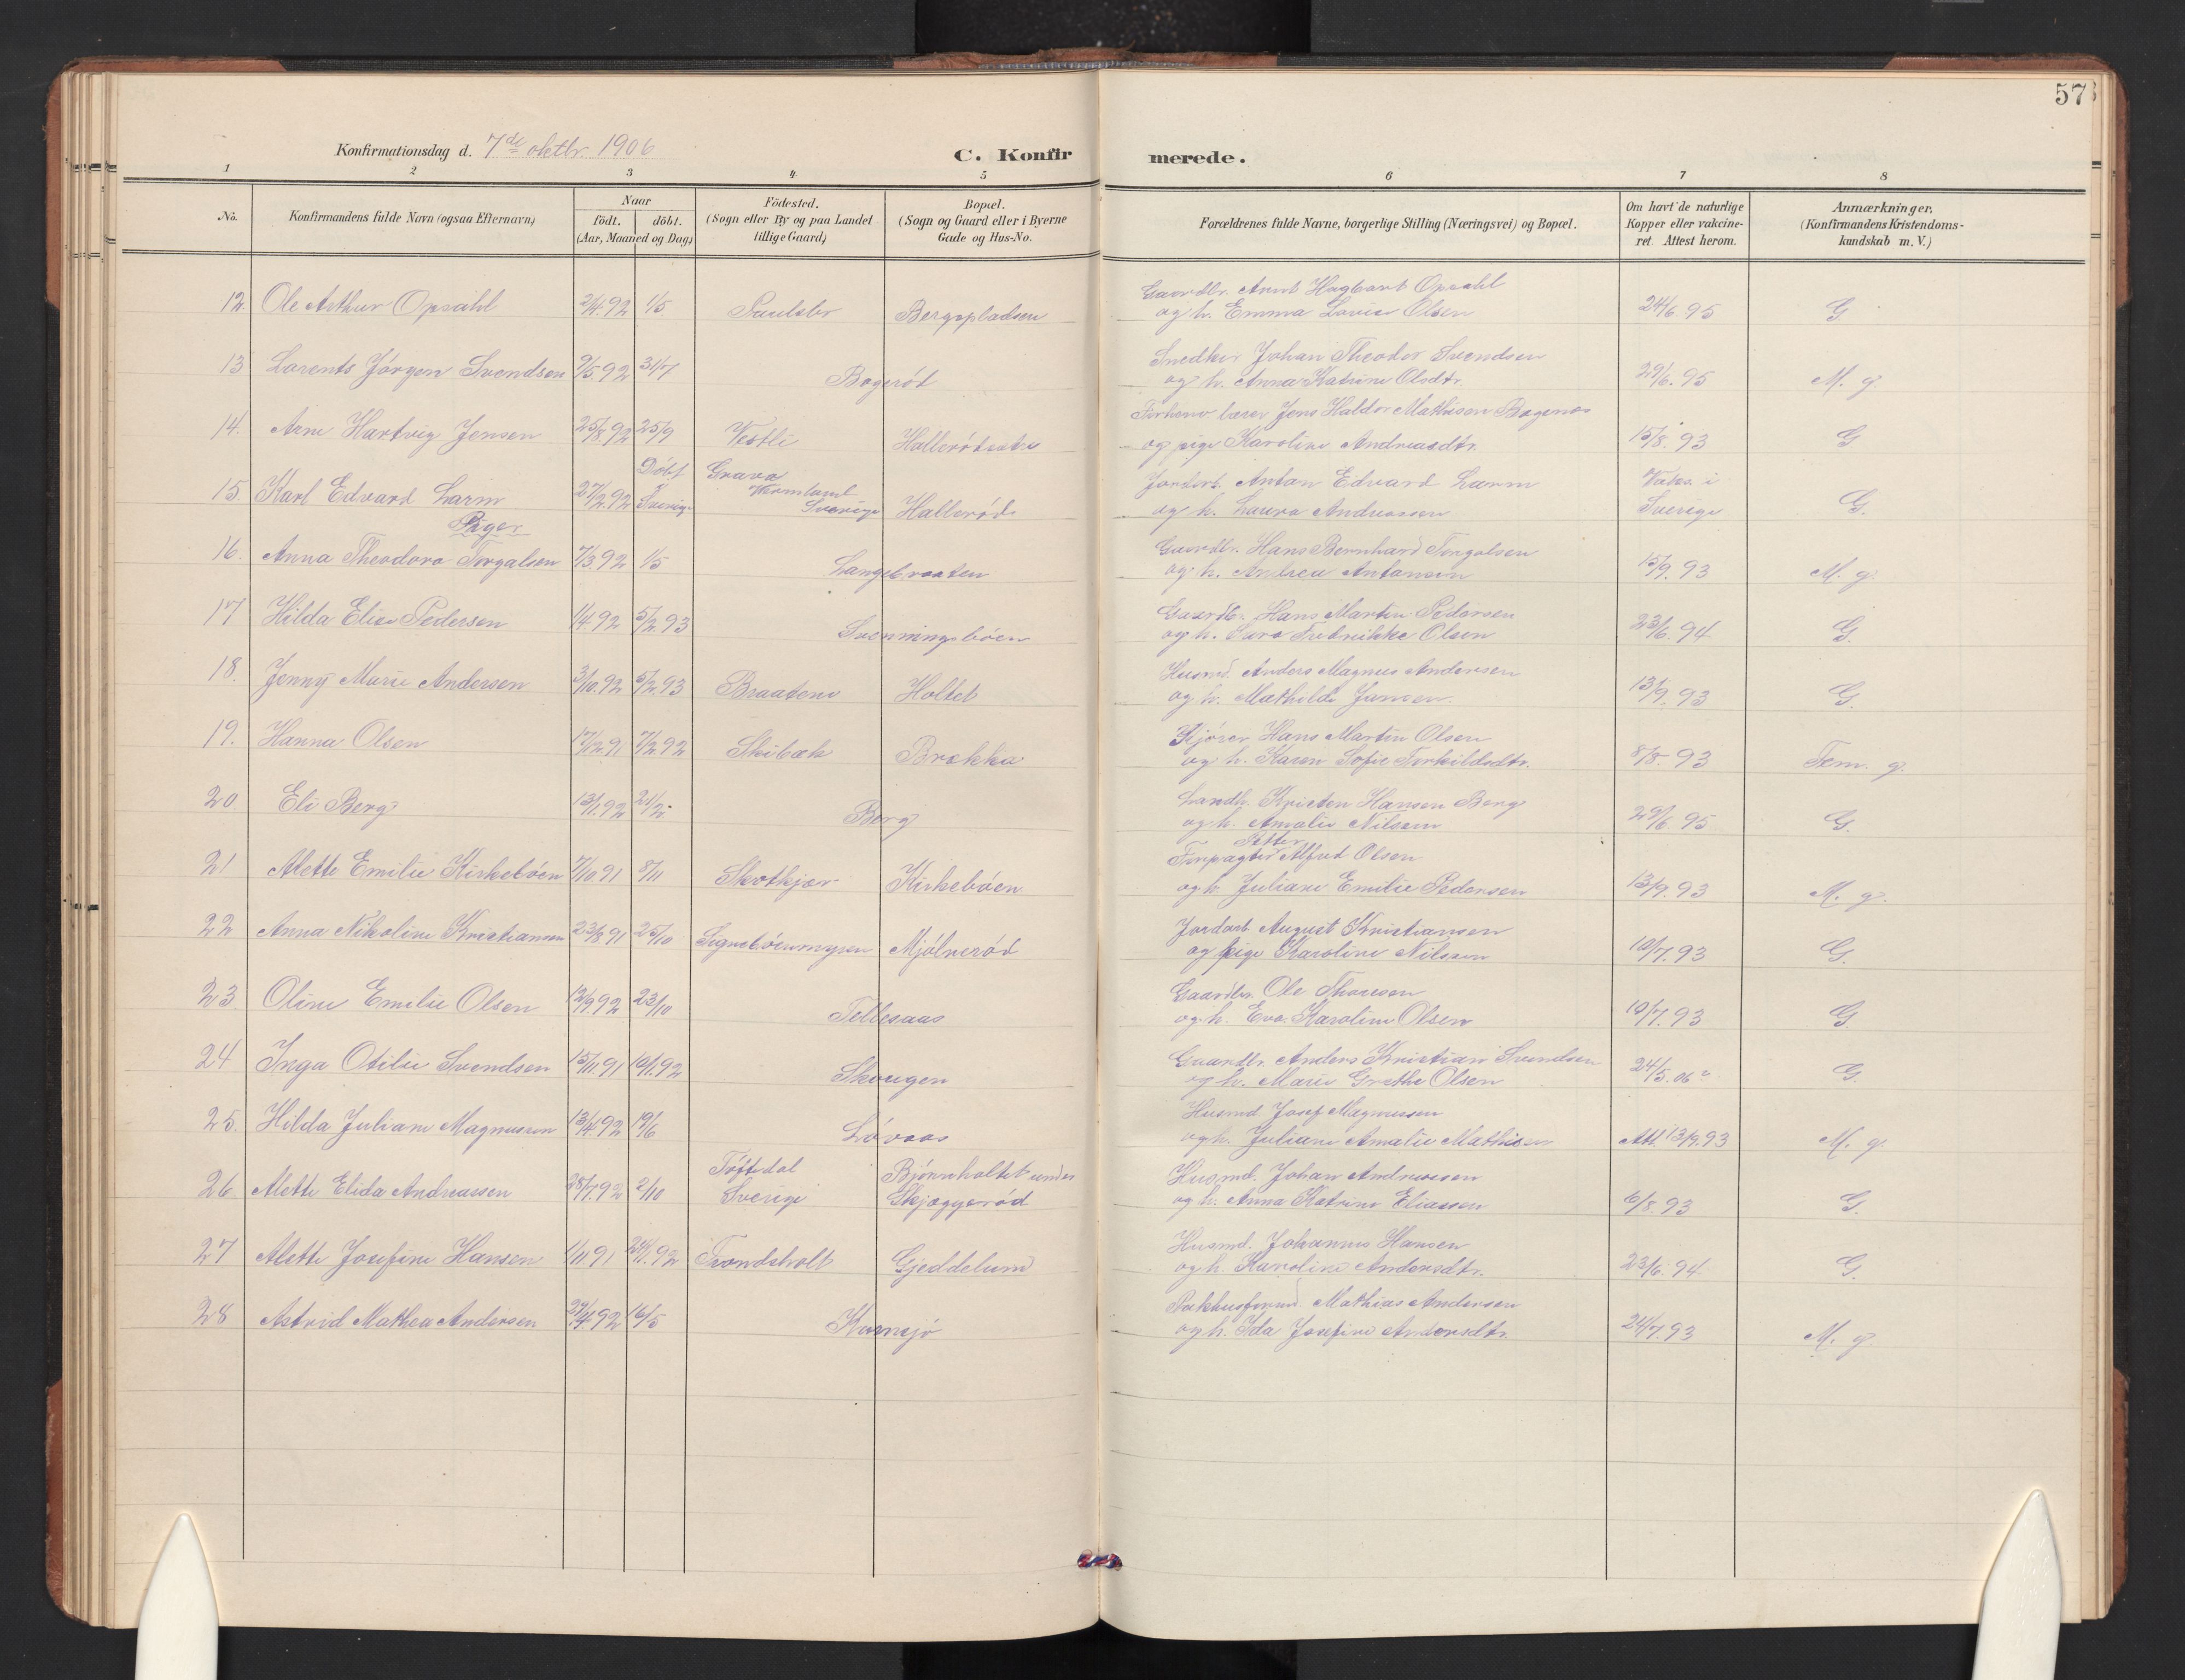 57
Konfirmationsdag d. 7de oktbr. 1906
C. Konfirmerede.
1 2 3 4 5 6 7 8
No. Konfirmandens fulde Navn (ogsaa Efternavn) Naar født. døbt. (Aar, Maaned og Dag) Fødested. (Sogn eller By og paa Landet tillige Gaard) Bopæl. (Sogn og Gaard eller i Byerne Gade og Hus-No. Forældrenes fulde Navne, borgerlige Stilling (Næringsvei) og Bopæl. Om havt de naturlige Kopper eller vakcineret. Attest herom. Anmærkninger. (Konfirmandens Kristendomskundskab m. V.)
12. Ole Arthur Opsahl 2/4.92 1/5 Bergspladsen Gaardbr. Arnt Hagbart Opsahl
og h. Emma Lovise Olsen 24/6 95 G
13 Lorents Jørgen Svendsen 9/5 92 31/7 Bogerød Snedker Johan Theodor Svendsen
og h. Anna Katrine Olsdtr. 29/6. 95 M. g.
14. Arne Hartvig Jensen 25/8.92 25/9 Vestli Jens Haldor Mathisen
og pige Karoline Andreasdtr. 15/8. 93 G
15. Karl Edvard Larm 27/2.92 Døbt Sverige Grava Vermland Sverige Hallerød Anton Edvard Larm
og h. Laura Andreassen Vakc. i Sverige G.
Piger
16. Anna Theodora Torgalsen 7/3 92 1/5 Langebraaten Gaardbr. Hans Bernhard Torgalsen
og h. Andrea Antonsen 15/9. 93 M. g.
17 Hilda Elise Pedersen 1/4.92 5/2.93 Svenningsbøen Gaardbr. Hans Martin Pedersen
og h. Fredrikke Olsen 23/6. 94 G.
18. Jenny Marie Andersen 3/10.92 5/2.93 Braatene Holtet Husmd. Anders Magnus Andersen
og h. Mathilde Jensen. 13/9. 93 G.
19. Hanna Olsen 17/12.91 7/2.92 Skibæk Brækka Kjører Hans Martin Olsen
og h. Karen Sofie Torkildsdtr. 8/8. 93 Tem. g.
20 Eli Berg 13/1.92 21/2 Berg Landh. Kristen Hansen Berg
og h. Amalie Nilssen 29/6. 95 G.
21 Alette Emilie Kirkebøen 7/10 91 8/11 Skotkjær Kirkebøen Forpagter Petter Alfred Olsen
og h. Juliane Emilie Pedersen 13/9. 93 M. g.
22 Anna Nikoline Kristiansen 23/8 91 25/10 Signebøenmyren Mjølnerød August Kristiansen
og pige Karoline Nilssen 10/7. 93 G.
23 Oline Emilie Olsen 12/9.92 23/10 Tellesaas Gaardbr. Ole Thoresen
og h. Eva Karoline Olsen 10/7. 93 G.
24 Inga Otilie Svendsen 15/11 91 10/1.92 Skougen Gaardbr. Anders Kristian Svendsen
og h. Marie Grethe Olsen 24/5. 06 G.
25. Hilda Juliane Magnussen 13/4.92 19/6 Løvaas Husmd. Josef Magnussen
og h. Juliane Amalie Mathisen Att. 13/9. 93 M. g.
26. Alette Elida Andreassen 28/7.92 2/10 Töftedal Sverige Bjørnholtet under Skjeggerød Husmd. Johan Andreassen
og h. Anna Katrine Eliassen 6/8. 93 G.
27 Alette Josefine Hansen 1/11.91 24/1.92 Trondsholt Gjeddelund Husmd. Johannes Hansen
og h. Karoline Andersdtr. 23/6. 94 G.
28 Astrid Mathea Andersen 29/4 92 16/5 Kornsjø Pakhusformd. Mathias Andersen
og h. Ida Josefine Andersdtr. 24/7. 93 M. g.